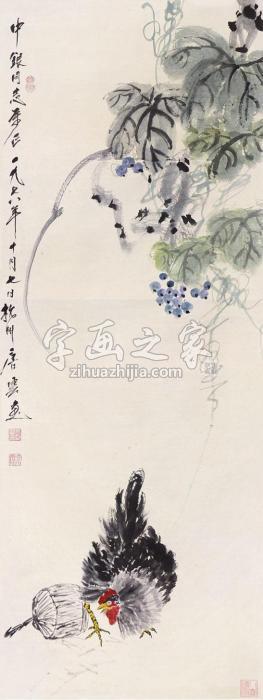 中银同志素正一九七八年十月七日杭州唐云画
字画之家
zihuazhijia.com